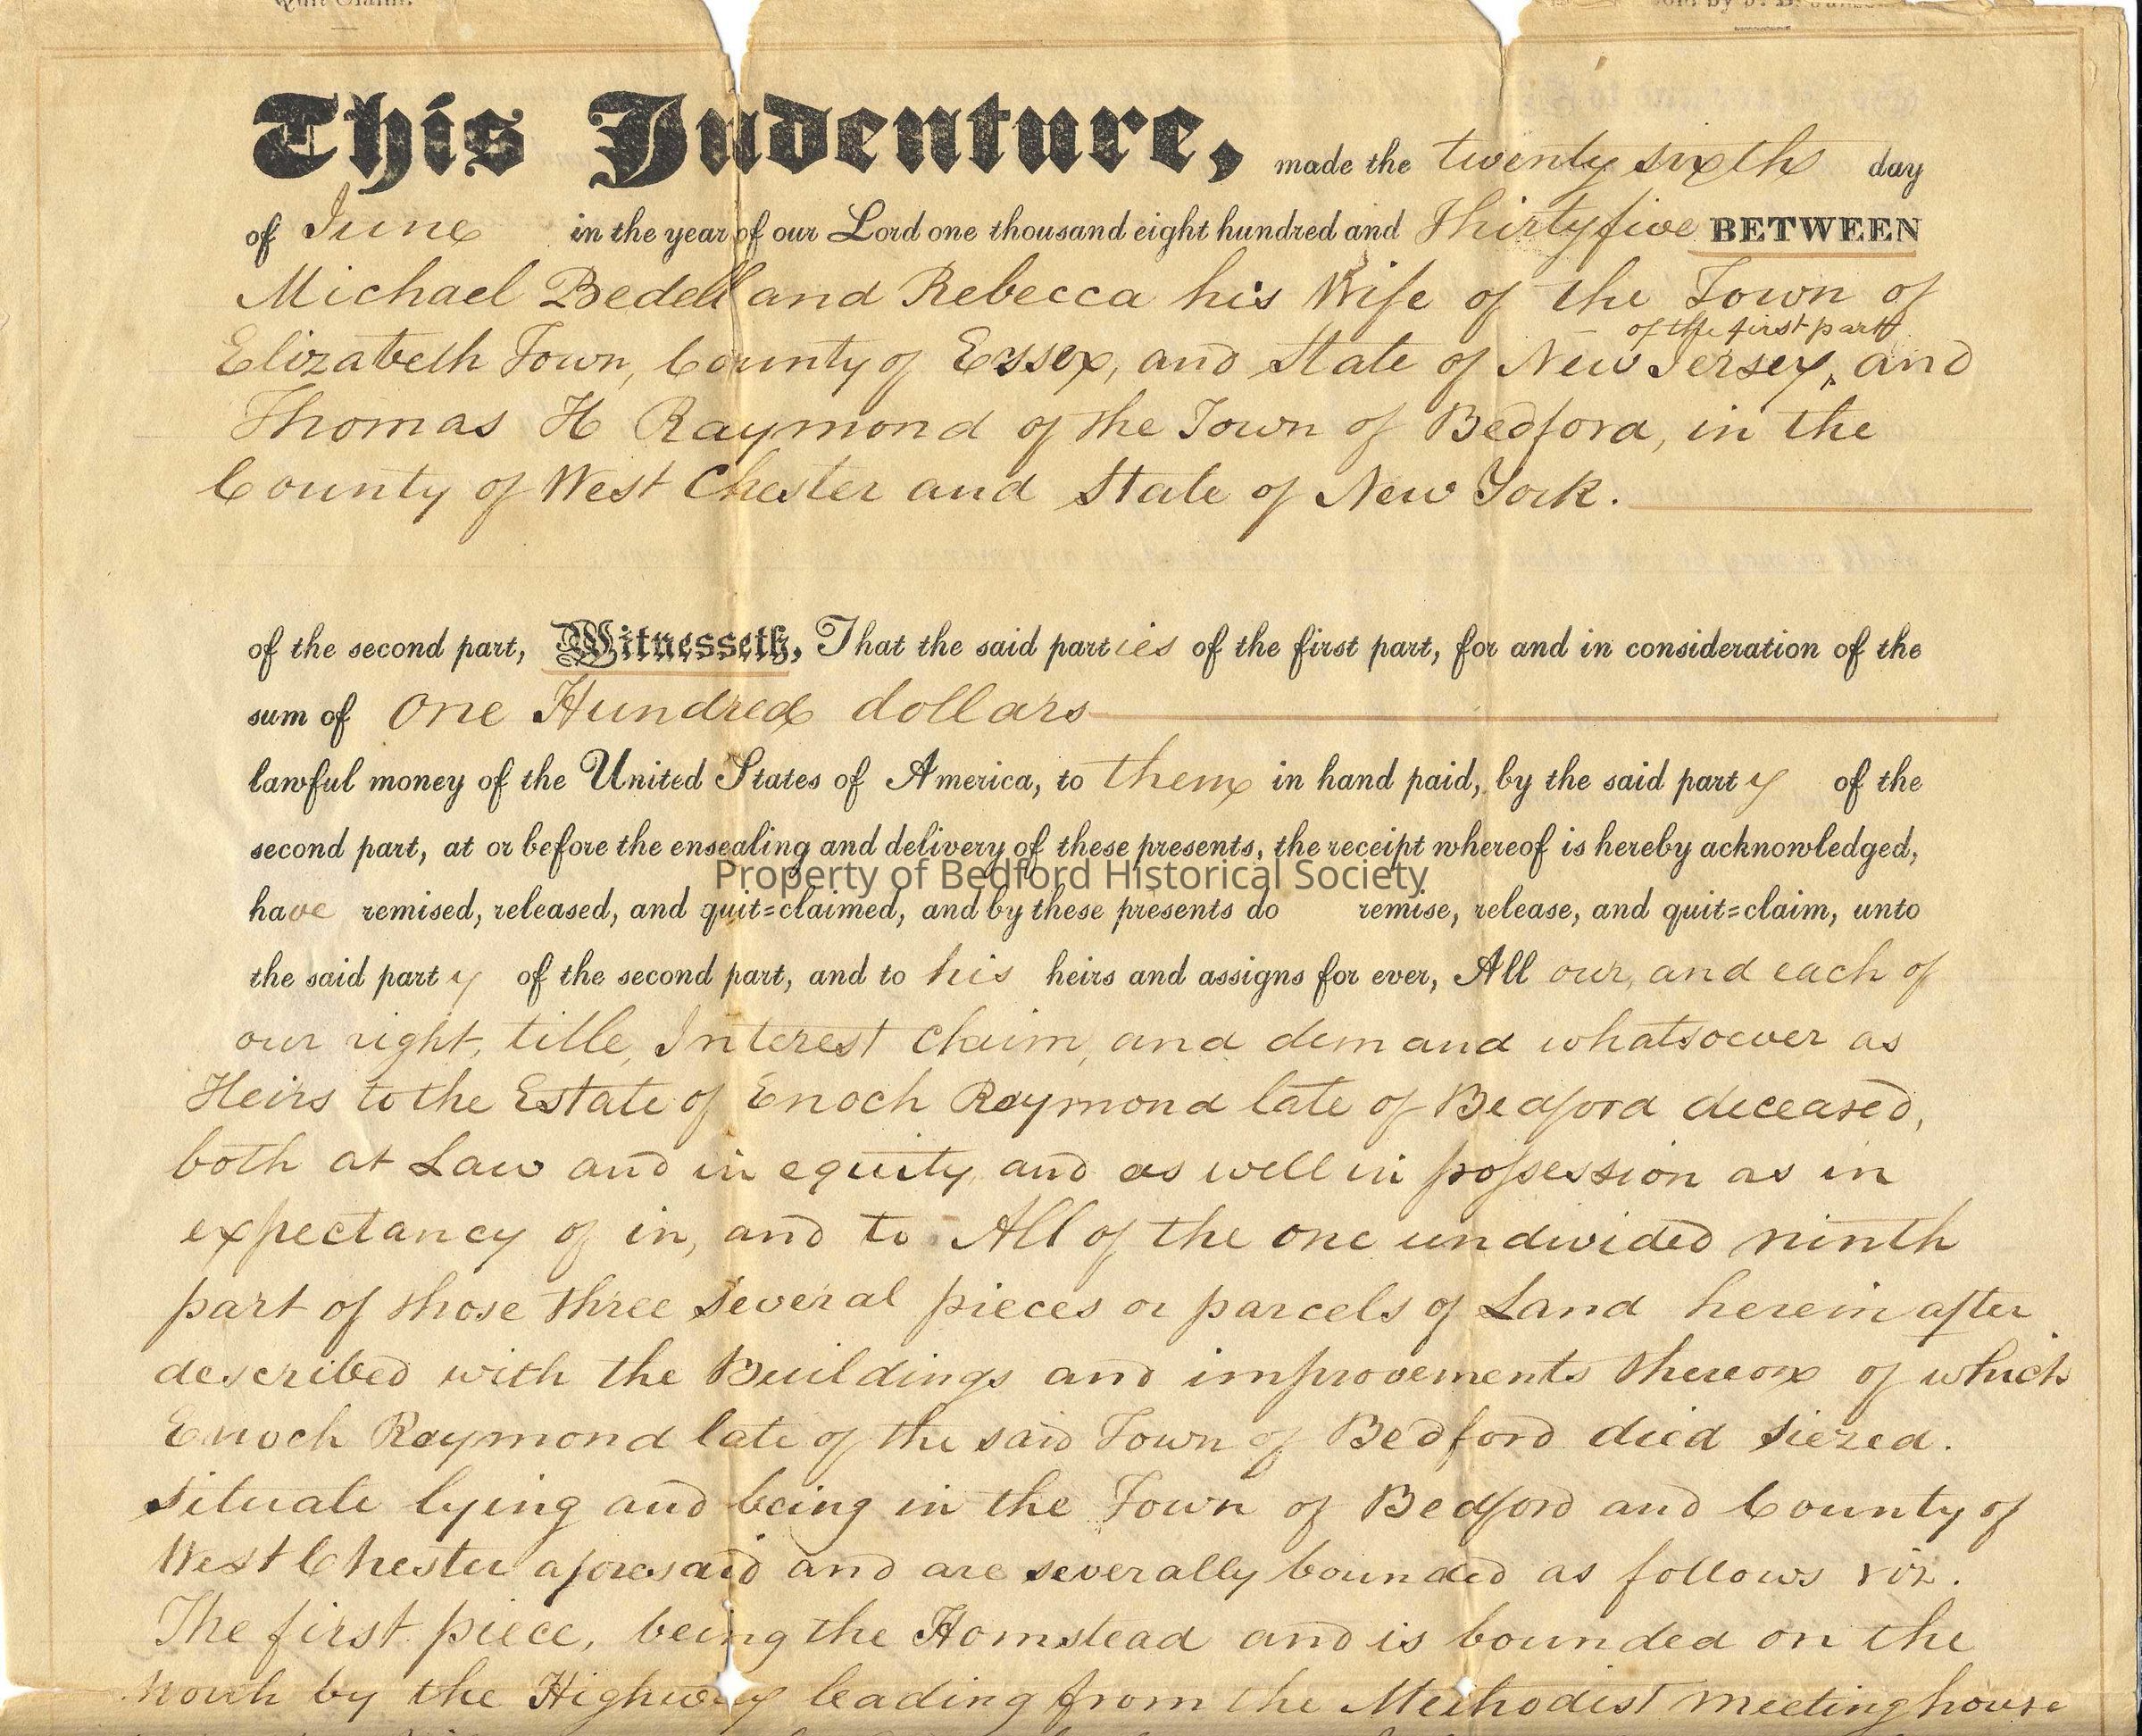 Quit Claim.
This Indenture, made the twenty sixth day
of June in the year of our Lord one thousand eight hundred and Thirtyfive BETWEEN
Michael Bedell and Rebecca his Wife of the Town of
of the first part
Elizabeth Town, County of Essex, and State of New Jersey, and
Thomas H Raymond of the Town of Bedford, in the
County of West Chester and State of New York.
of the second part, Witnesseth, That the said parties of the first part, for and in consideration of the
sum of One Hundred dollars
lawful money of the United States of America, to them in hand paid, by the said party of the
second part, at or before the ensealing and delivery of these presents, the receipt whereof is hereby acknowledged,
Property of Bedford Historical Society
have remised, released, and quit=claimed, and by these presents do remise, release, and quit=claim, unto
the said party of the second part, and to his heirs and assigns for ever, All our, and each of
our right, title, Interest claim, and demand whatsoever as
Heirs to the Estate of Enoch Raymond late of Bedford deceased,
both at Law and in equity, and as well in possession as in
expectancy of in, and to All of the one undivided ninth
part of those three several pieces or parcels of Land herein after
described with the Buildings and improvements thereon of which
Enoch Raymond late of the said Town of Bedford died siezed.
situate lying and being in the Town of Bedford and County of
West Chester aforesaid and are severally bounded as follows viz.
The first piece, being the Homstead and is bounded on the
North by the Highway leading from the Methodist meetinghouse